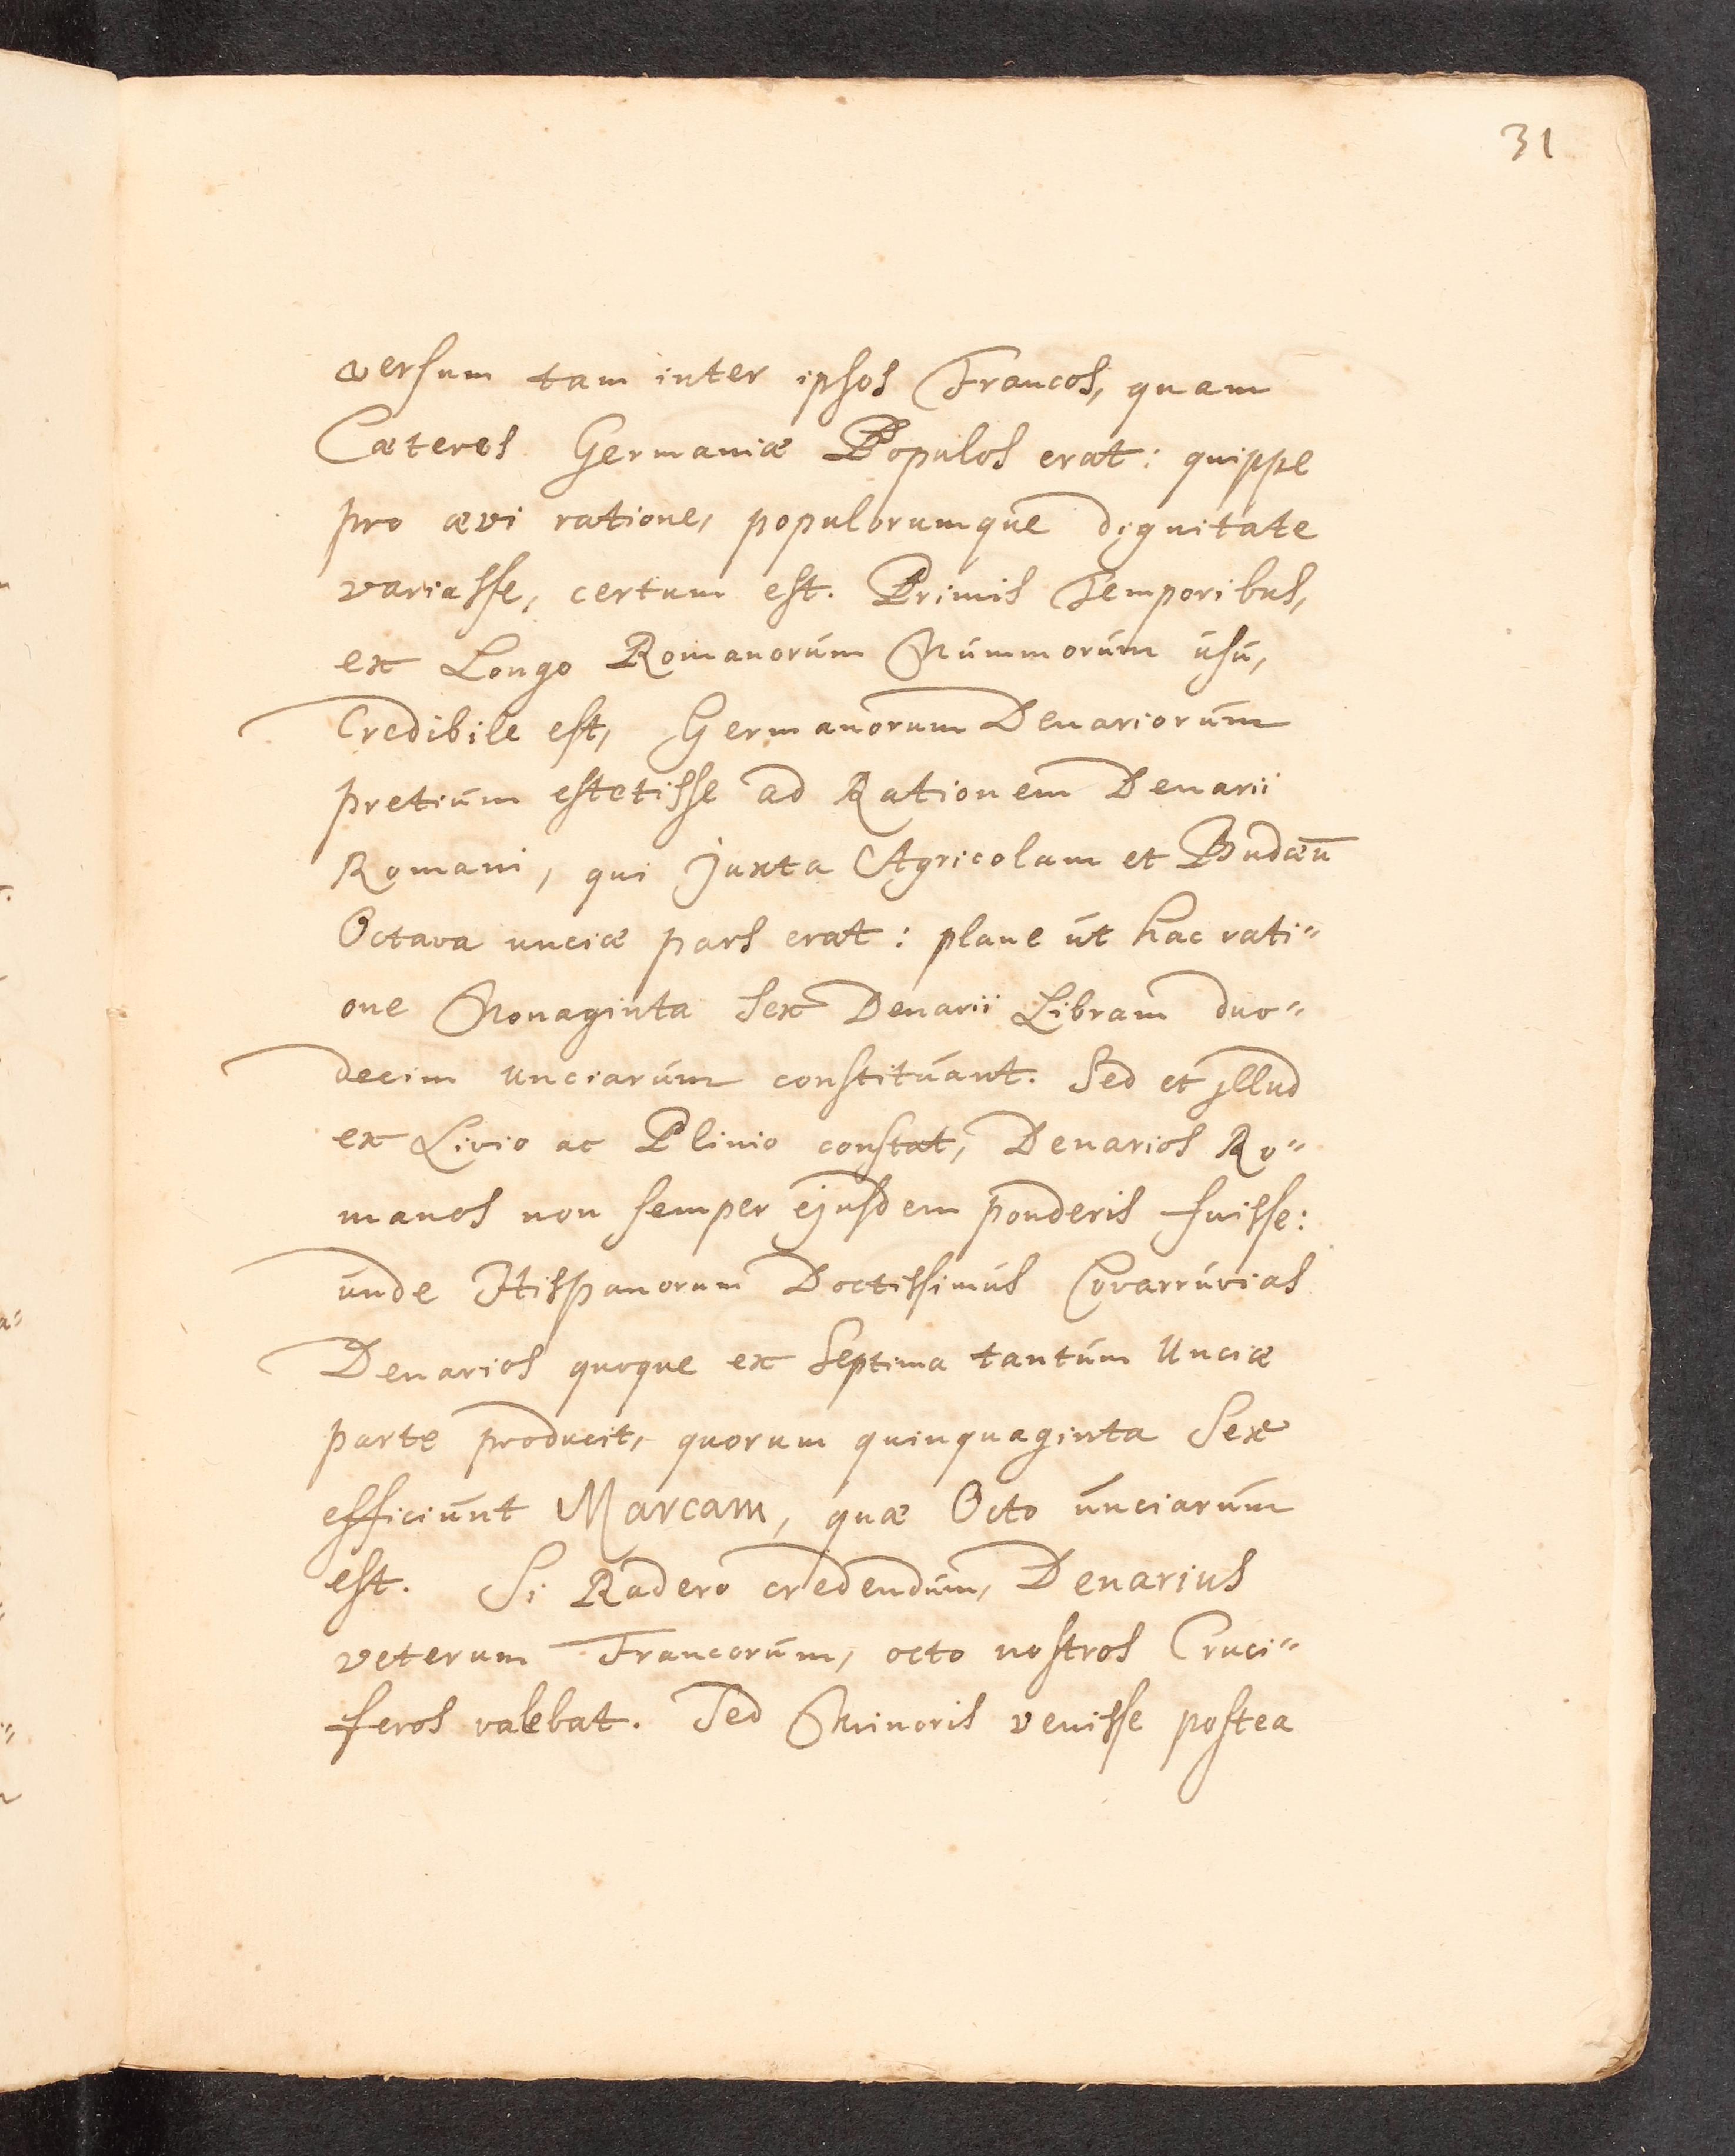 31
versum tam inter ipsos Francos, quam
Cæteros Germaniæ Populos erat: quippe
pro ævi ratione, populorumque dignitate
variasse, certum est. Primis Temporibus,
ex Longo Romanorúm Númmorúm úsú,
Credibile est, Germanorum Denariorúm
pretiúm estetisse ad Rationem Denarii
Romani, qui juxta Agricolam et Budæū
Octava unciæ pars erat: plane út hac rati"
one Nonaginta Sex Denarii Libram duo"
decim unciarúm constitúant. Sed et jllud
ex Livio ac Plinio constat, Denarios Ro"
manos non semper ejusdem ponderis fuisse:
únde Hispanorum Doctissimús Covarrúvias
Denarios quoque ex Septima tantúm Unciæ
parte producit, quorum quinquaginta Sex
efficiúnt Marcam, quæ Octo únciarúm
est. Si Radero credendúm, Denarius
veterum Francorúm, octo nostros Cruci"
feros valebat. Sed Minoris venisse postea